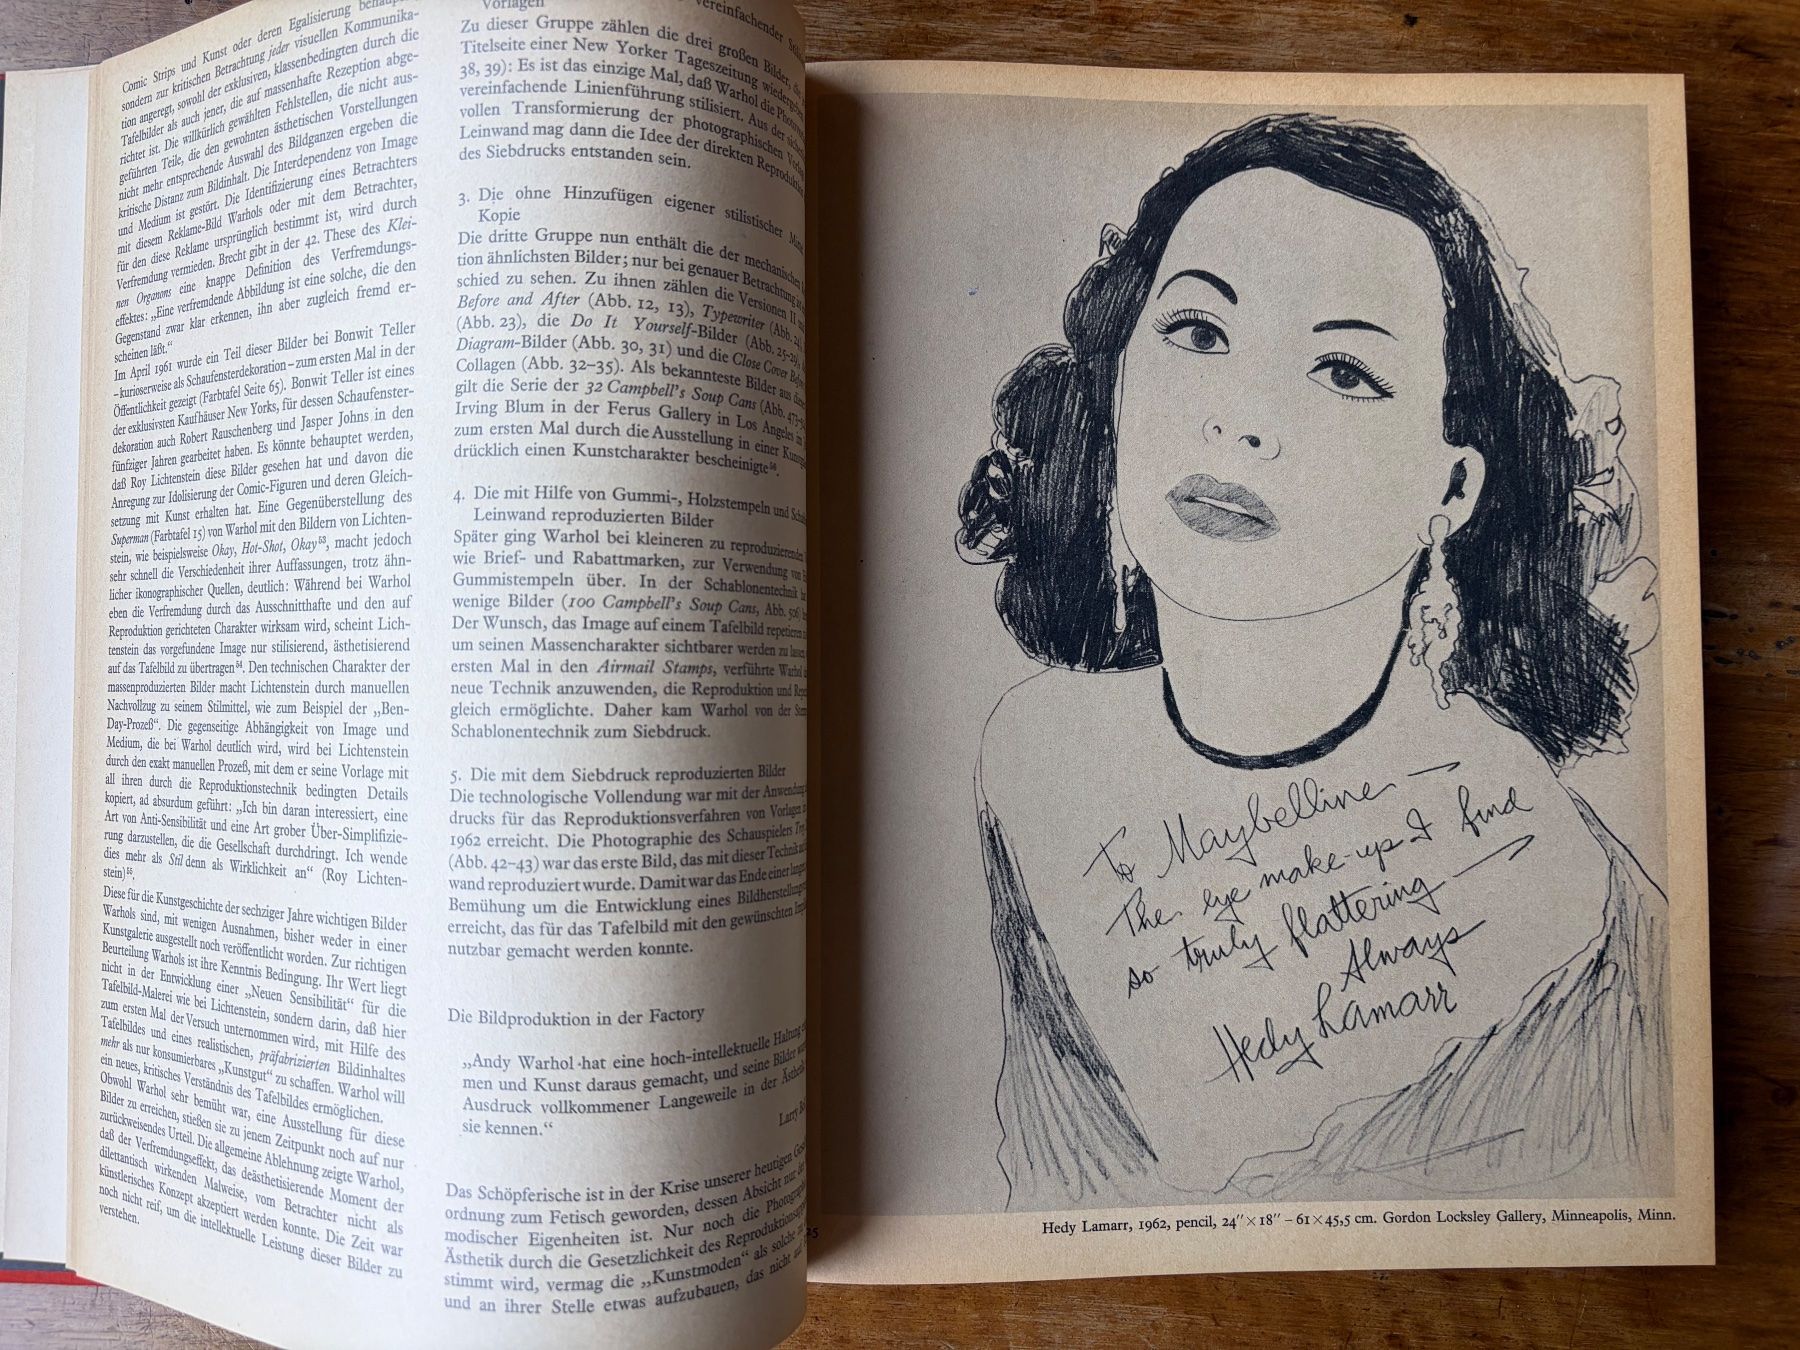 Comic Strips und Kunst oder deren Egalisierung
sondern zur kritischen Betrachtung jeder visuellen Kommunika-
tion angeregt, sowohl der exklusiven, klassenbedingten durch die
Tafelbilder als auch jener, die auf massenhafte Rezeption abge-
richtet ist. Die willkürlich gewählten Fehlstellen, die nicht aus-
geführten Teile, die den gewohnten ästhetischen Vorstellungen
nicht mehr entsprechende Auswahl des Bildganzen ergeben die
kritische Distanz zum Bildinhalt. Die Interdependenz von Image
und Medium ist gestört. Die Identifizierung eines Betrachters
mit diesem Reklame-Bild Warhols oder mit dem Betrachter,
für den diese Reklame ursprünglich bestimmt ist, wird durch
Verfremdung vermieden. Brecht gibt in der 42. These des Klei-
nen Organons eine knappe Definition des Verfremdungs-
effektes: „Eine verfremdende Abbildung ist eine solche, die den
Gegenstand zwar klar erkennen, ihn aber zugleich fremd er-
scheinen läßt.“
Im April 1961 wurde ein Teil dieser Bilder bei Bonwit Teller
– kurioserweise als Schaufensterdekoration – zum ersten Mal in der
Öffentlichkeit gezeigt (Farbtafel Seite 65). Bonwit Teller ist eines
der exklusivsten Kaufhäuser New Yorks, für dessen Schaufenster-
dekoration auch Robert Rauschenberg und Jasper Johns in den
fünfziger Jahren gearbeitet haben. Es könnte behauptet werden,
daß Roy Lichtenstein diese Bilder gesehen hat und davon die
Anregung zur Idolisierung der Comic-Figuren und deren Gleich-
setzung mit Kunst erhalten hat. Eine Gegenüberstellung des
Superman (Farbtafel 15) von Warhol mit den Bildern von Lichten-
stein, wie beispielsweise Okay, Hot-Shot, Okay⁵³, macht jedoch
sehr schnell die Verschiedenheit ihrer Auffassungen, trotz ähn-
licher ikonographischer Quellen, deutlich: Während bei Warhol
eben die Verfremdung durch das Ausschnitthafte und den auf
Reproduktion gerichteten Charakter wirksam wird, scheint Lich-
tenstein das vorgefundene Image nur stilisierend, ästhetisierend
auf das Tafelbild zu übertragen⁵⁴. Den technischen Charakter der
massenproduzierten Bilder macht Lichtenstein durch manuellen
Nachvollzug zu seinem Stilmittel, wie zum Beispiel der „Ben-
Day-Prozeß“. Die gegenseitige Abhängigkeit von Image und
Medium, die bei Warhol deutlich wird, wird bei Lichtenstein
durch den exakt manuellen Prozeß, mit dem er seine Vorlage mit
all ihren durch die Reproduktionstechnik bedingten Details
kopiert, ad absurdum geführt: „Ich bin daran interessiert, eine
Art von Anti-Sensibilität und eine Art grober Über-Simplifizie-
rung darzustellen, die die Gesellschaft durchdringt. Ich wende
dies mehr als Stil denn als Wirklichkeit an“ (Roy Lichten-
stein)⁵⁵.
Diese für die Kunstgeschichte der sechziger Jahre wichtigen Bilder
Warhols sind, mit wenigen Ausnahmen, bisher weder in einer
Kunstgalerie ausgestellt noch veröffentlicht worden. Zur richtigen
Beurteilung Warhols ist ihre Kenntnis Bedingung. Ihr Wert liegt
nicht in der Entwicklung einer „Neuen Sensibilität“ für die
Tafelbild-Malerei wie bei Lichtenstein, sondern darin, daß hier
zum ersten Mal der Versuch unternommen wird, mit Hilfe des
Tafelbildes und eines realistischen, präfabrizierten Bildinhaltes
mehr als nur konsumierbares „Kunstgut“ zu schaffen. Warhol will
ein neues, kritisches Verständnis des Tafelbildes ermöglichen.
Obwohl Warhol sehr bemüht war, eine Ausstellung für diese
Bilder zu erreichen, stießen sie zu jenem Zeitpunkt noch auf nur
zurückweisendes Urteil. Die allgemeine Ablehnung zeigte Warhol,
daß der Verfremdungseffekt, das deästhetisierende Moment der
dilettantisch wirkenden Malweise, vom Betrachter nicht als
künstlerisches Konzept akzeptiert werden konnte. Die Zeit war
noch nicht reif, um die intellektuelle Leistung dieser Bilder zu
verstehen.
vereinfachender
Vorlagen
Zu dieser Gruppe zählen die drei großen Bilder, die
Titelseite einer New Yorker Tageszeitung
38, 39): Es ist das einzige Mal, daß Warhol die
vereinfachende Linienführung stilisiert. Aus der
vollen Transformierung der photographischen
Leinwand mag dann die Idee der direkten
des Siebdrucks entstanden sein.
3. Die ohne Hinzufügen eigener stilistischer
Kopie
Die dritte Gruppe nun enthält die der mechanischen
tion ähnlichsten Bilder; nur bei genauer Betrachtung
schied zu sehen. Zu ihnen zählen die Versionen II
Before and After (Abb. 12, 13), Typewriter (Abb.
(Abb. 23), die Do It Yourself-Bilder (Abb.
Diagram-Bilder (Abb. 30, 31) und die Close Cover
Collagen (Abb. 32–35). Als bekannteste Bilder aus
gilt die Serie der 32 Campbell’s Soup Cans (Abb.
Irving Blum in der Ferus Gallery in Los Angeles
zum ersten Mal durch die Ausstellung in einer
drücklich einen Kunstcharakter bescheinigte⁵⁶.
4. Die mit Hilfe von Gummi-, Holzstempeln und
Leinwand reproduzierten Bilder
Später ging Warhol bei kleineren zu reproduzierenden
wie Brief- und Rabattmarken, zur Verwendung von
Gummistempeln über. In der Schablonentechnik
wenige Bilder (100 Campbell’s Soup Cans, Abb.
Der Wunsch, das Image auf einem Tafelbild
um seinen Massencharakter sichtbarer werden zu lassen
ersten Mal in den Airmail Stamps, verführte Warhol
neue Technik anzuwenden, die Reproduktion und
gleich ermöglichte. Daher kam Warhol von der
Schablonentechnik zum Siebdruck.
5. Die mit dem Siebdruck reproduzierten Bilder
Die technologische Vollendung war mit der Anwendung
drucks für das Reproduktionsverfahren von Vorlagen
1962 erreicht. Die Photographie des Schauspielers
(Abb. 42–43) war das erste Bild, das mit dieser Technik
wand reproduziert wurde. Damit war das Ende einer
Bemühung um die Entwicklung eines
erreicht, das für das Tafelbild mit den gewünschten
nutzbar gemacht werden konnte.
Die Bildproduktion in der Factory
„Andy Warhol hat eine hoch-intellektuelle Haltung
men und Kunst daraus gemacht, und seine Bilder
Ausdruck vollkommener Langeweile in der
sie kennen.“
Larry
Das Schöpferische ist in der Krise unserer heutigen
ordnung zum Fetisch geworden, dessen Absicht nur
modischer Eigenheiten ist. Nur noch die
Ästhetik durch die Gesetzlichkeit des
stimmt wird, vermag die „Kunstmoden“ als solche
und an ihrer Stelle etwas aufzubauen, das nicht
To Maybelline
The eye make-up I find
so truly flattering
Always
Hedy Lamarr
25
Hedy Lamarr, 1962, pencil, 24″ × 18″ – 61 × 45,5 cm. Gordon Locksley Gallery, Minneapolis, Minn.